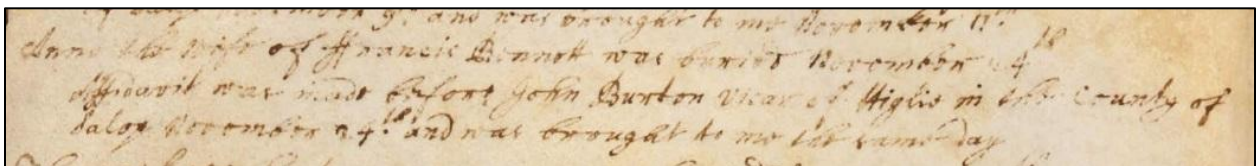 of Salop November 9th and was brought to me November 11th
Anne the Wife of Francis Bennett was buried November 24th
Affidavit was made before John Burton vicar of Higlie in the County of
Salop November 24th and was brought to me the same day